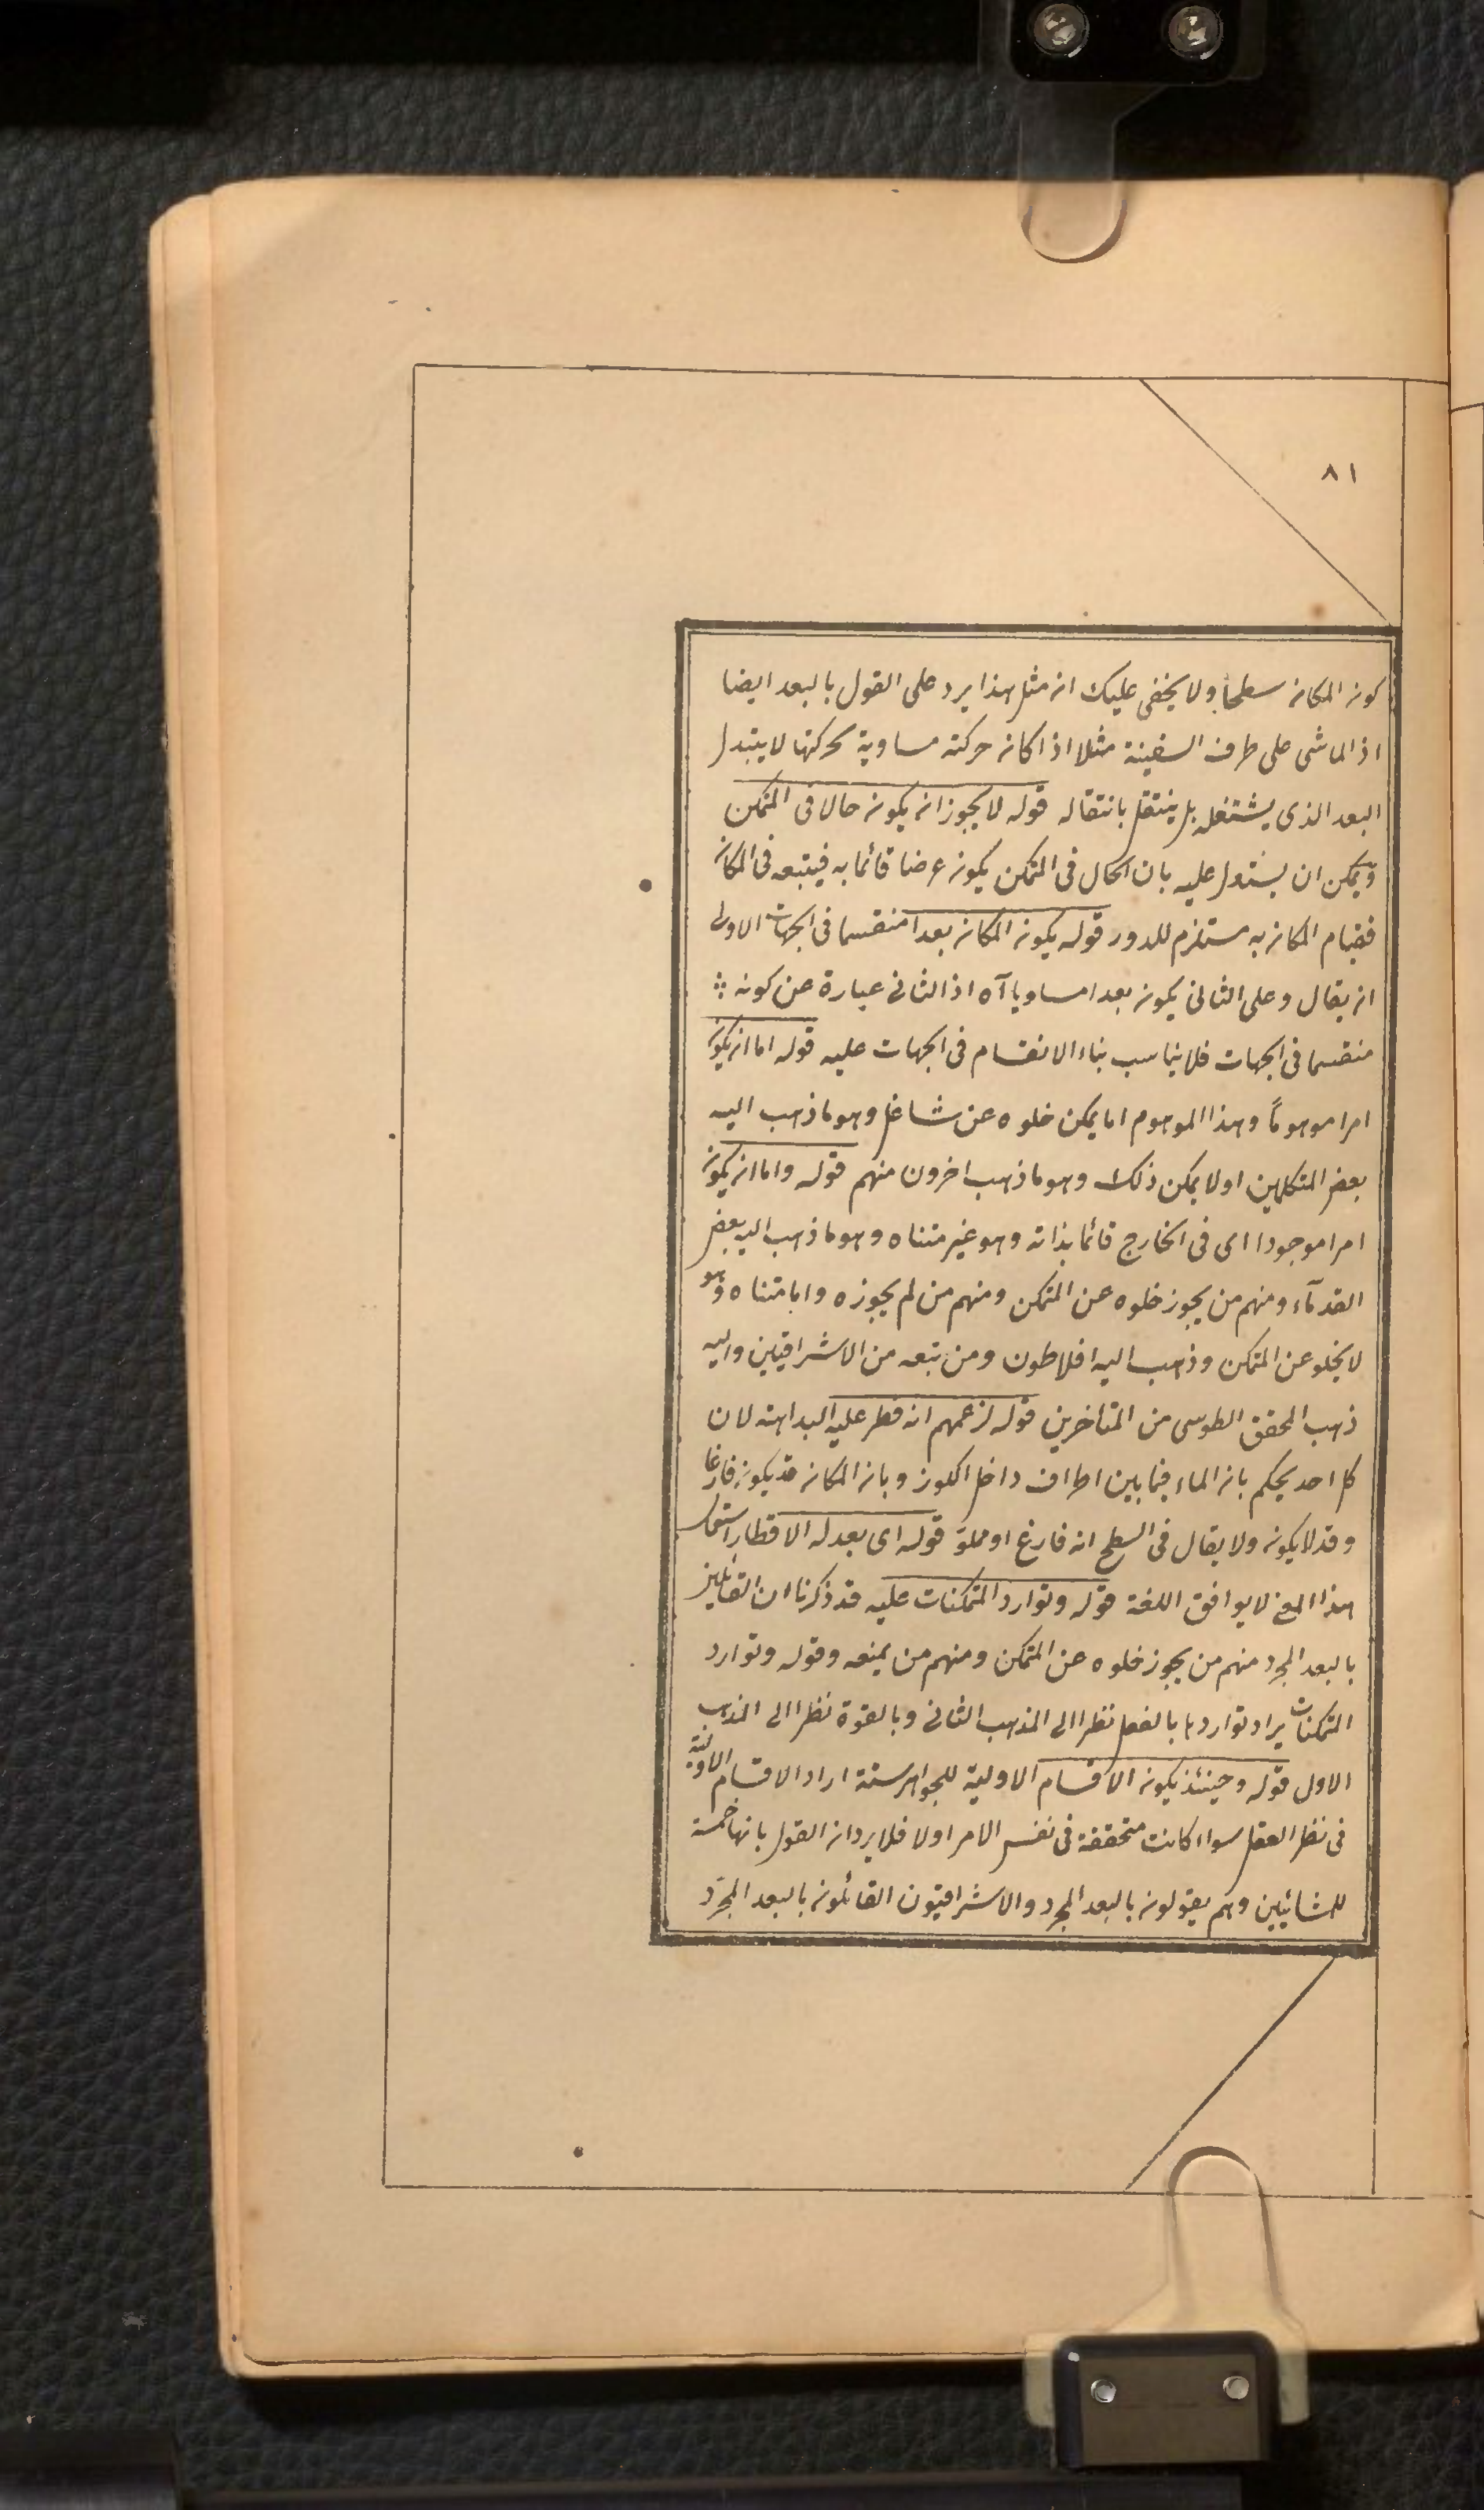 ٨١
كون المكان سطحا ولا يخفى عليك ان مثل هذا يرد على القول بالبعد ايضا
اذ الماشى على طرف السفينة مثلا اذا كان حركته مساوية لحركتها لا يتبدل
البعد الذى يشتغله بل ينتقل بانتقاله قوله لا يجوز ان يكون حالا فى المتمكن
ويمكن ان يستدل عليه بان الحال فى المتمكن يكون عرضا قائما به فيتبعه فى المكان
فقيام المكان به مستلزم للدور قوله يكون المكان بعدا منقسما فى الجهات الاولى
ان يقال وعلى الثانى يكون بعدا مساويا آه اذ الثانى عبارة عن كونه
منقسما فى الجهات فلا يناسب بناء الانقسام فى الجهات عليه قوله اما ان يكون
امرا موهوماً وهذا الموهوم اما يمكن خلوه عن شاغل وهو ما ذهب اليه
بعض المتكلمين او لا يمكن ذلك وهو ما ذهب اخرون منهم قوله واما ان يكون
امرا موجودا اى فى الخارج قائما بذاته وهو غير متناه وهو ما ذهب اليه بعض
القدمآء ومنهم من يجوز خلوه عن المتمكن ومنهم من لم يجوزه واما متناه وهو
لا يخلو عن المتمكن وذهب اليه افلاطون ومن تبعه من الاشراقيين واليه
ذهب المحقق الطوسى من المتاخرين قوله لزعمهم انه فطر عليه البداهة لان
كل احد يحكم بان الماء فيما بين اطراف داخل الكوز وبان المكان قد يكون فارغا
وقد لا يكون ولا يقال فى السطح انه فارغ او مملوّ قوله اى بعد له الاقطار استعمال
هذا المعنى لا يوافق اللغة قوله وتوارد المتمكنات عليه قد ذكرنا ان القائلين
بالبعد المجرد منهم من يجوز خلوه عن المتمكن ومنهم من يمنعه وقوله وتوارد
المتمكنات يراد تواردها بالفعل نظرا الى المذهب الثانى وبالقوة نظرا الى المذهب
الاول قوله وحينئذ يكون الاقسام الاولية للجواهر ستة اراد الاقسام الاولية
فى نظر العقل سواا كانت متحققة فى نفس الامر اولا فلا يرد ان القول بانها خمسة
للمشائيين وهم يقولون بالبعد المجرد والاشراقيون القائلون بالبعد المجرّد